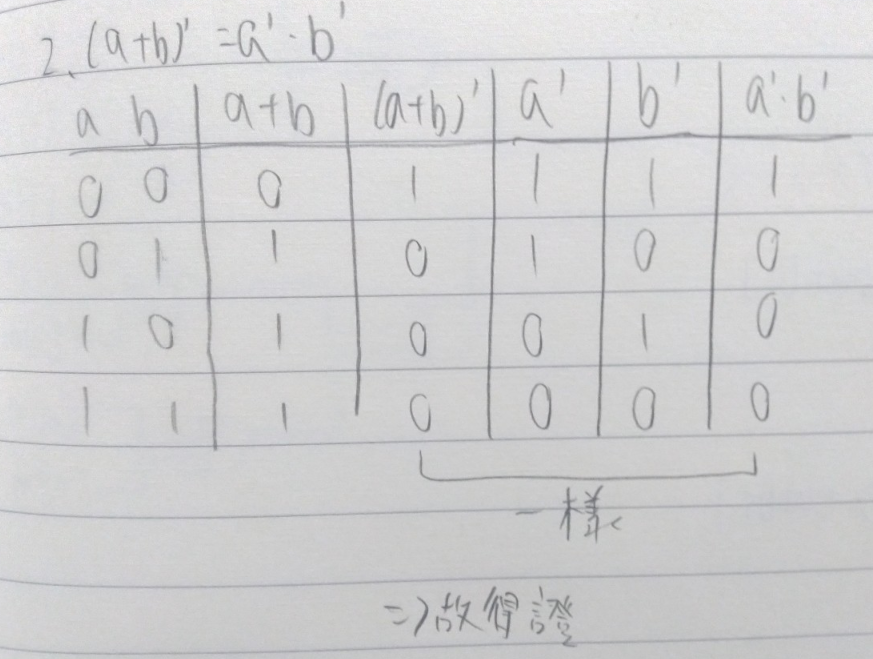 2. (a+b)' = a'·b'
a b a+b (a+b)' a' b' a'·b'
0 0 0 1 1 1 1
0 1 1 0 1 0 0
1 0 1 0 0 1 0
1 1 1 0 0 0 0
一樣
=>故得證